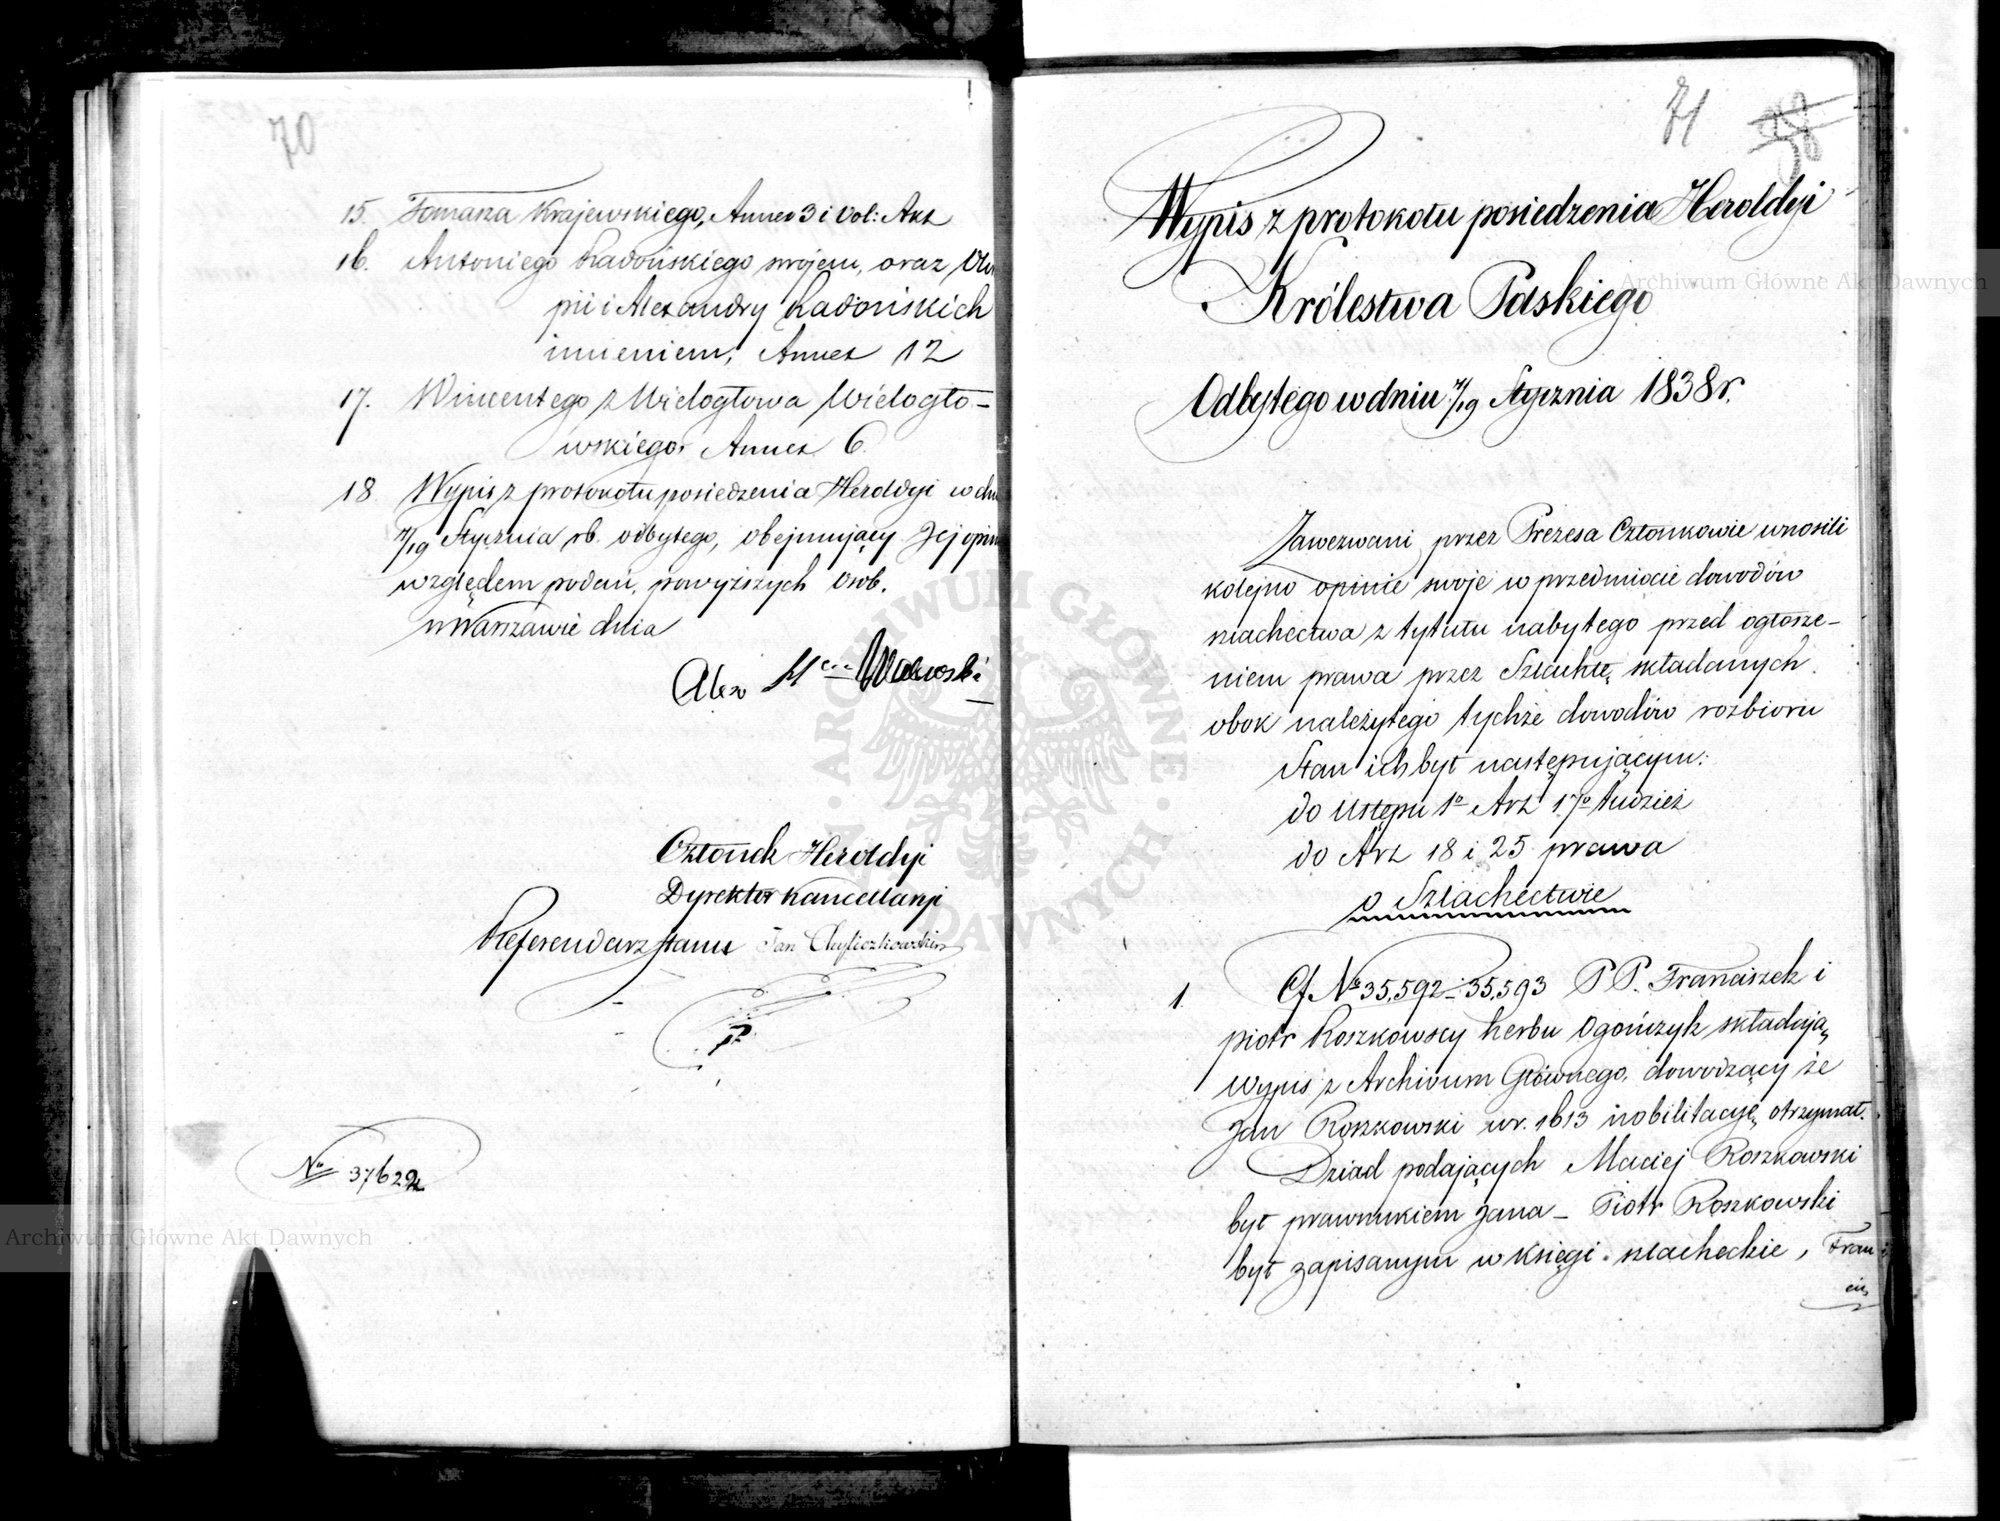 70
15. Tomasza Krajewskiego, Annex 3 i Vol: Akt
16. Antoniego Radońskiego swojem, oraz
pii i Alexandry Radońskich
imieniem, Annex 12
17. Wincentego z Wielogłowa Wielogło-
wskiego. Annex 6
18 Wypis z protokołu posiedzenia Heroldyi w dn
7/19 Stycznia rb. odbytego, obejmujący Jej opin
względem podań, powyższych osób.
w Warszawie dnia
Alex
Członek Heroldyi
Dyrektor Kancellaryi
Referendarz Stanu Jan
No 37622
71
Wypis z protokołu posiedzenia Heroldyi
Królestwa Polskiego
Odbytego w dniu 7/19 Stycznia 1838 r.
Zawezwani przez Prezesa Członkowie wnosili
kolejno opinie swoje w przedmiocie dowodów
szlachectwa z tytułu nabytego przed ogłosze-
niem prawa przez Szlachtę składanych
obok należytego tychże dowodów rozbioru
Stan ich był następującym:
do Ustępu 1o Art 17o tudzież
do Art 18 i 25 prawa
o Szlachectwie
1. Cf No 35,592 - 35,593 PP. Franciszek i
Piotr Roszkowscy herbu Ogończyk składają
wypis z Archivum Głównego, dowodzący że
Jan Roszkowski w r. 1613 nobilitacyę otrzymał.
Dziad podających Maciej Roszkowski
był prawnukiem Jana - Piotr Roszkowski
był zapisanym w księgi szlacheckie, Fran
Archiwum Główne Akt Dawnych
Archiwum Główne Akt Dawnych
ARCHIWUM GŁÓWNE AKT DAWNYCH